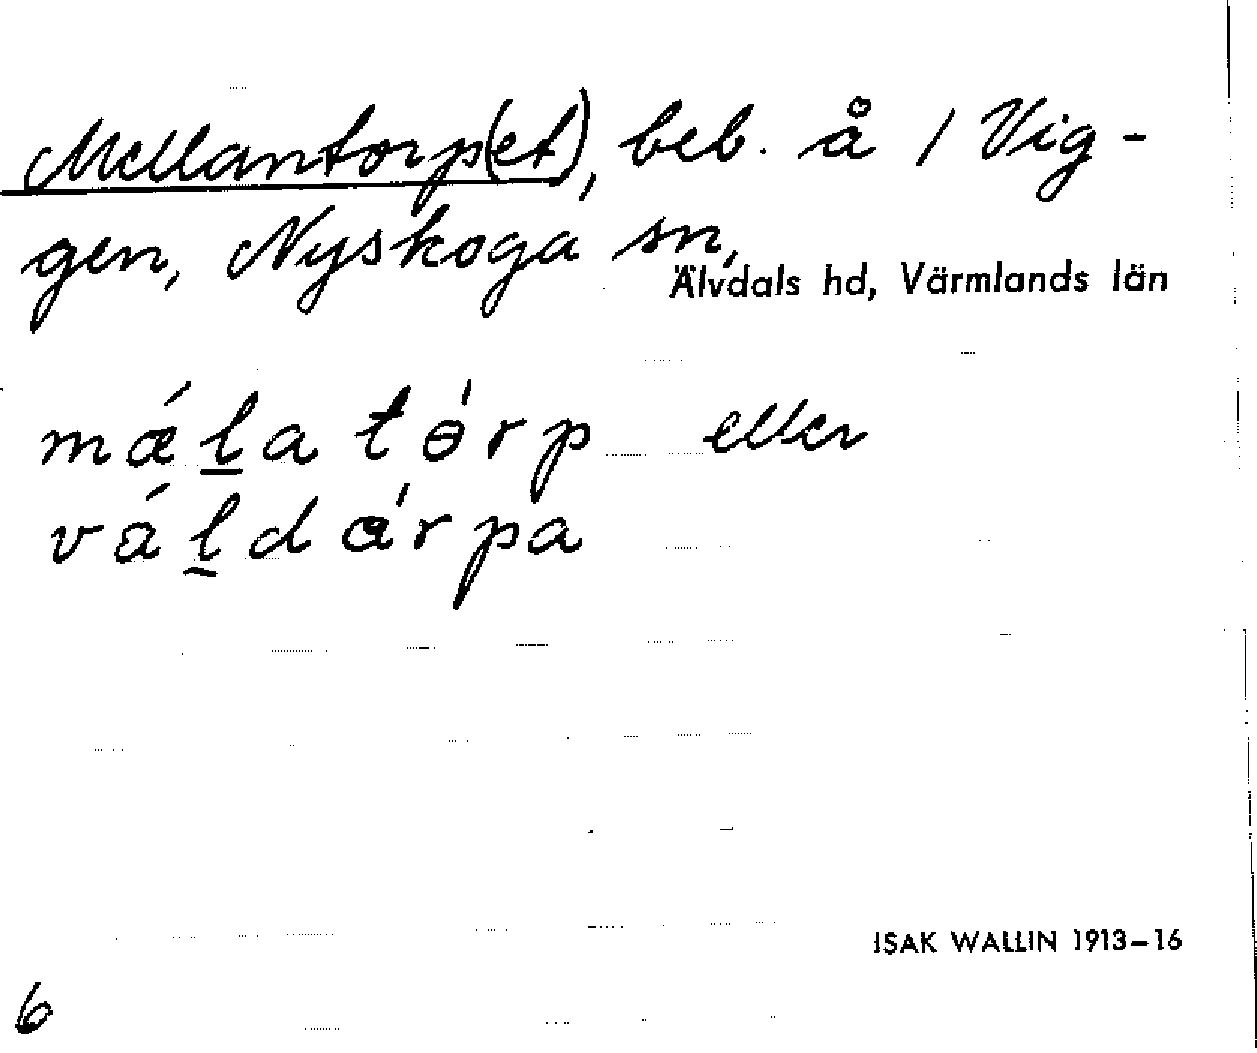 Mellantorp(et), beb. å 1 Vig-
gen, Nyskoga sn,
Älvdals hd, Värmlands län
mǽl̲a tɵ́rp eller
vál̲dárpa
ISAK WALLIN 1913–16
6